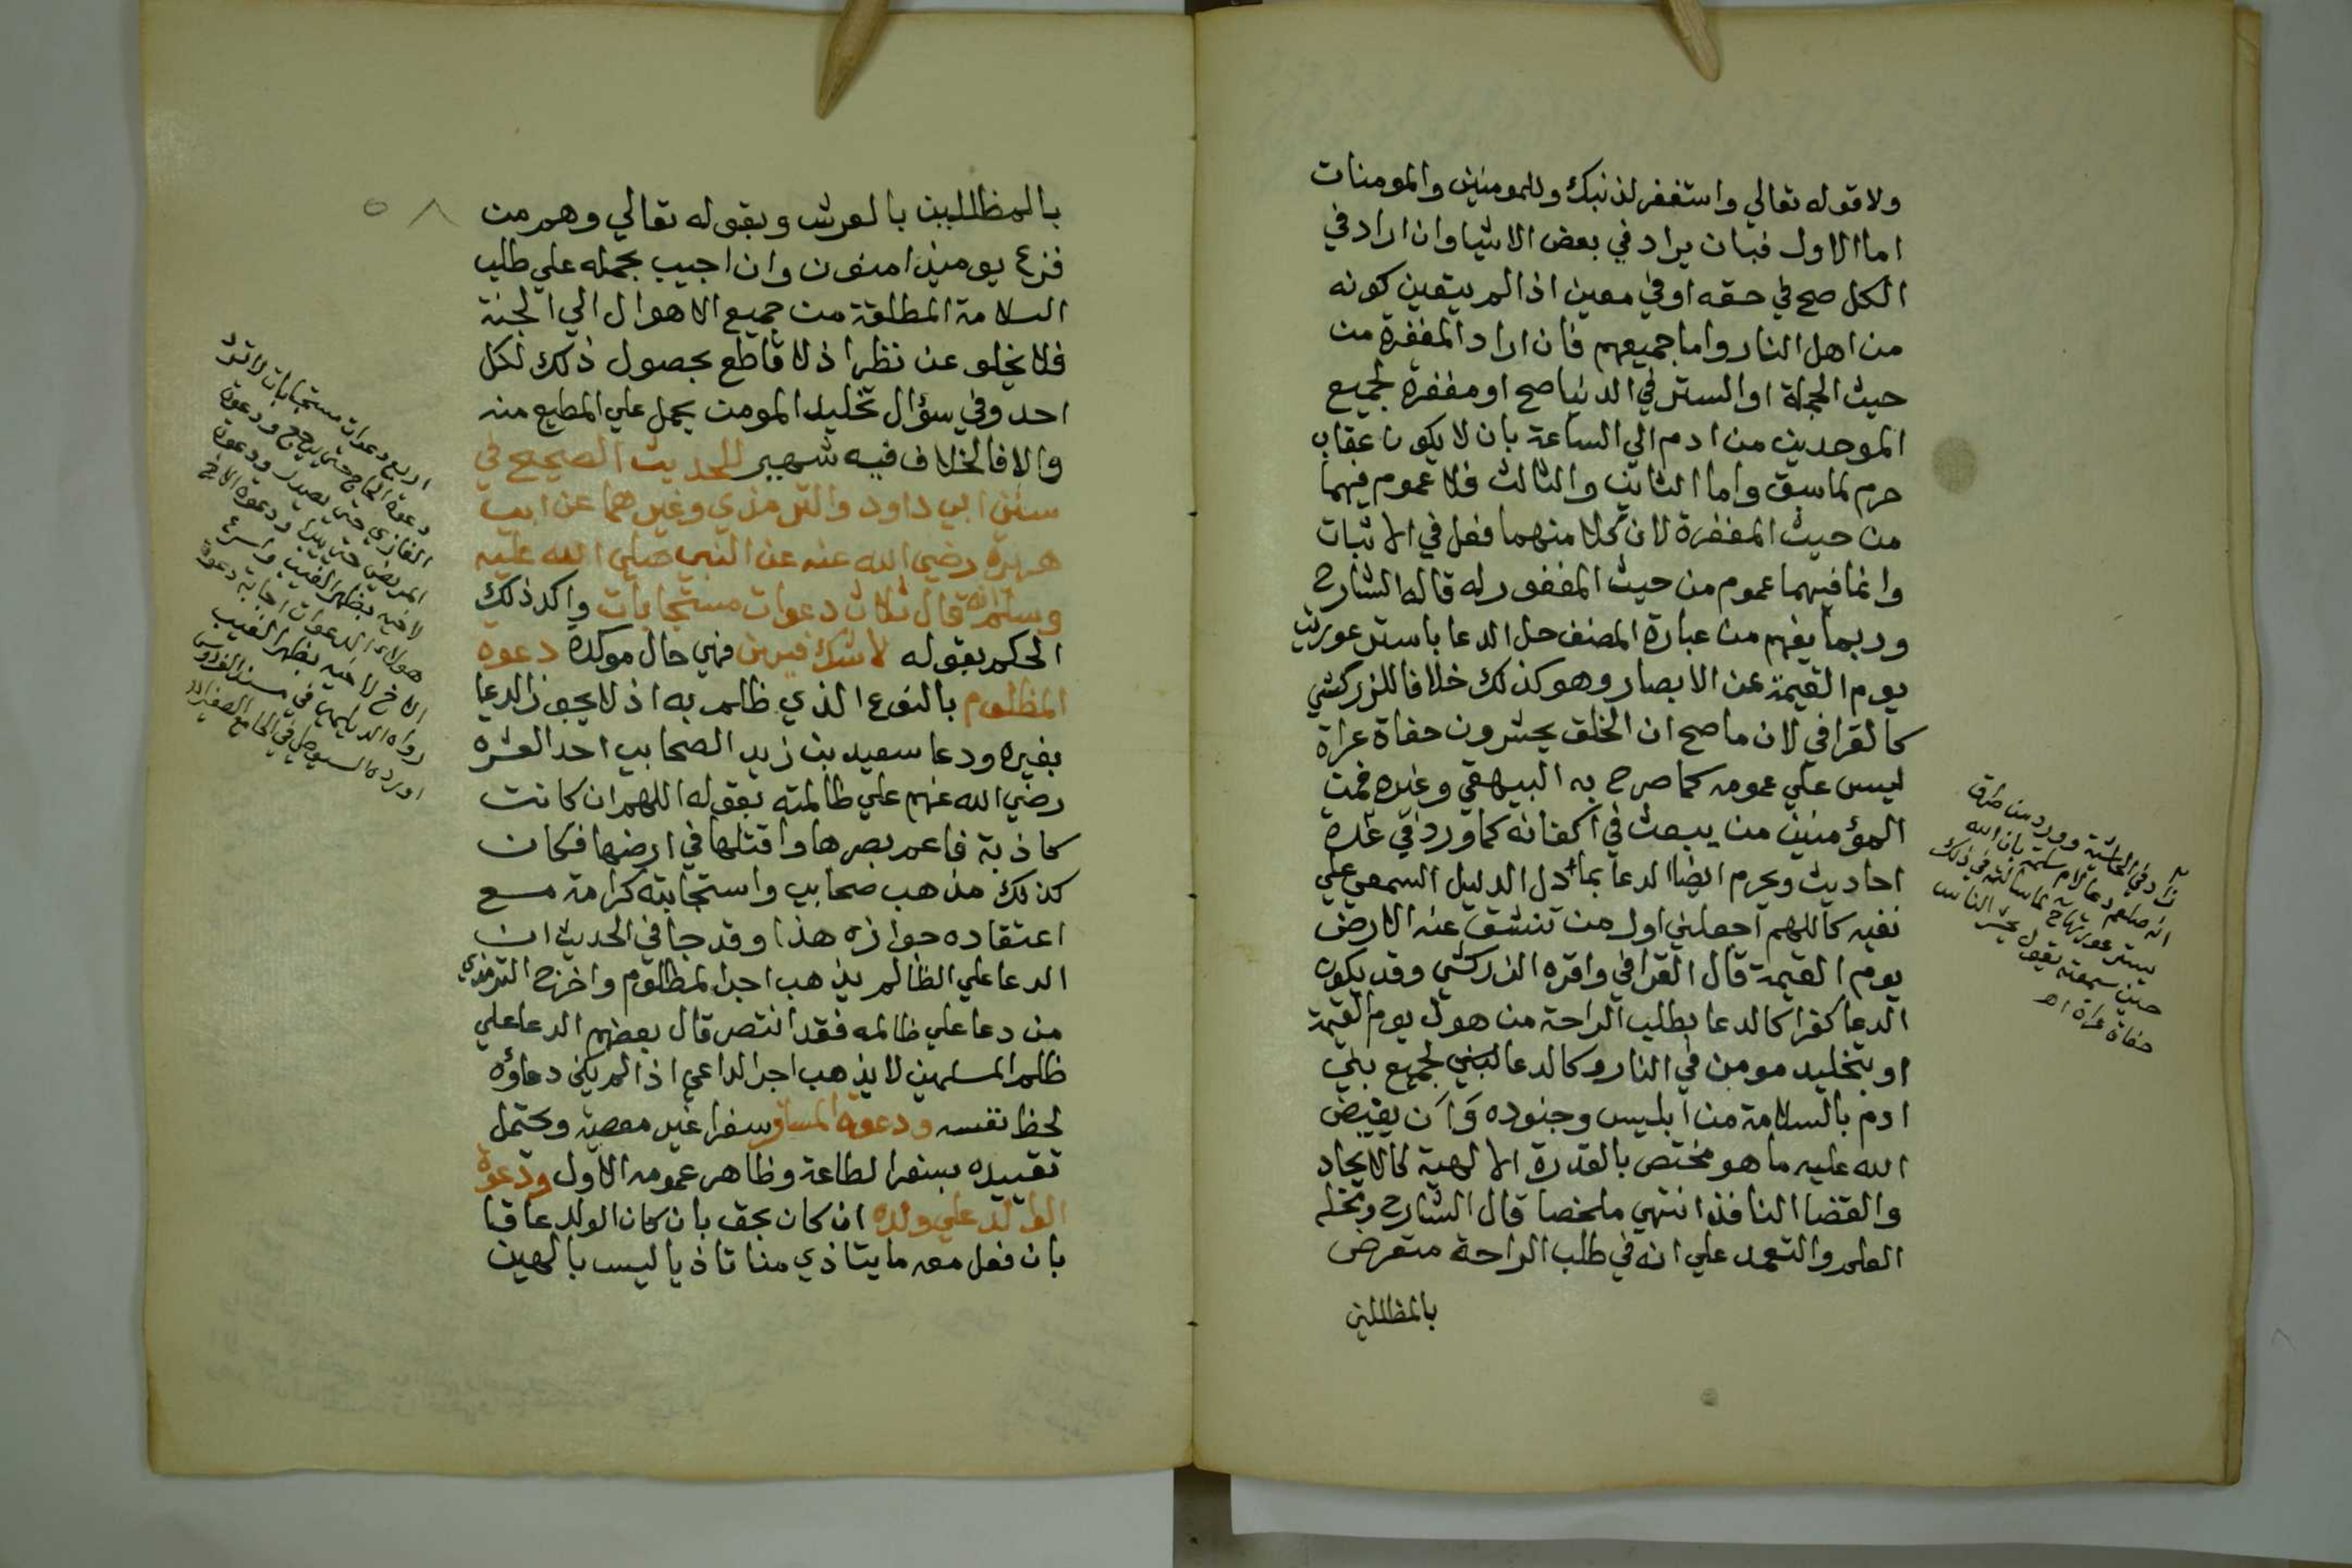 ولا قوله تعالي واستغفر لذنبك وللمومنين والمومنات
اما الاول فبان يراد في بعض الاشيا وان اراد في
الكل صح في حقه او في معين اذا لم يتعين كونه
من اهل النار واما جميعهم فان اراد المغفرة من
حيث الجملة او الستر في الدنيا صح او مغفرة لجميع
الموحدين من ادم الي الساعة بان لا يكون عقاب
حرم لما سبق واما الثاني والثالث فلا عموم فيهما
من حيث المغفرة لان كلا منهما فعل في الاثبات
وانما فيهما عموم من حيث المغفور له قاله الشارح
وربما يفهم من عبارة المصنف حل الدعا باستر عورتي
يوم القيمة عن الابصار وهو كذلك خلافا للزركشي
كالقرافي لان ما صح ان الخلق يحشرون حفاة عراة
ليس علي عمومه كما صرح به البيهقي وغيره فمن
المؤمنين من يبعث في اكفانه كما ورد في عدة
احاديث ويحرم ايضا الدعا بما دل الدليل السمعي علي
نفيه كاللهم اجعلني اول من تنشق عنه الارض
يوم القيمة قال القرافي واقره الزركشي وقد يكون
الدعا كفرا كالدعا بطلب الراحة من هول يوم القيمة
او بتخليد مومن في النار وكالدعا لبني لجميع بني
ادم بالسلامة من ابليس وجنوده وان يقيض
الله عليه ما هو مختص بالقدرة الالهية كالايجاد
والقضا النافذ انتهي ملخصا قال الشارح ومحله
العلم والتعمد علي انه في طلب الراحة متعرض
بالمظللين
زاد في الحاشية وورد من طرق
انه صلعم دعا لام سلمة بان الله
يستر عورتها لما سالته في ذلك
حين سمعته يقول يحشر الناس
حفاة عراة اه
٥٨
بالمظللين بالعرش وبقوله تعالي وهم من
فزع يومئذ امنون وان اجيب بحمله علي طلب
السلامة المطلقة من جميع الاهوال الي الجنة
فلا يخلو عن نظر اذ لا قاطع بحصول ذلك لكل
احد وفي سؤال تخليد المومن يحمل علي المطيع منه
والا فالخلاف فيه شهير للحديث الصحيح في
سنن ابي داود والترمذي وغيرهما عن ابي
هريرة رضي الله عنه عن النبي صلي الله عليه
وسلم انه قال ثلاث دعوات مستجابات واكد ذلك
الحكم بقوله لا شك فيهن فهي حال موكدة دعوة
المظلوم بالنوع الذي ظلم به اذ لا يجوز الدعا
بغيره ودعا سعيد بن زيد الصحابي احد العشره
رضي الله عنهم علي ظالمته بقوله اللهم ان كانت
كاذبة فاعم بصرها واقتلها في ارضها فكان
كذلك مذهب صحابي واستجابته كرامة مع
اعتقاده جوازه هذا وقد جا في الحديث ان
الدعا علي الظالم يذهب اجر المظلوم واخرج الترمذي
من دعا علي ظالمه فقد انتصر قال بعضهم الدعا علي
ظلم المسلمين لا يذهب اجر الداعي اذا لم يكن دعاؤه
لحظ نفسه ودعوة المسافر سفرا غير معصية ويحتمل
تقييده بسفر الطاعة وظاهر عمومه الاول ودعوة
الوالد علي ولده ان كان بحق بان كان الولد عاقا
بان فعل معه ما يتاذي منا تاذيا ليس بالهين
اربع دعوات مستجابات لا ترد
دعوة الحاج حتي يرجع ودعوة
الغازي حتي يصدر ودعوة
المريض حتي يبرا ودعوة الاخ
لاخيه بظهر الغيب واسرع
هولاء الدعوات اجابة دعوة
الاخ لاخيه بظهر الغيب
رواه الديلمي في مسند الفردوس
اورده السيوطي في الجامع الصغير